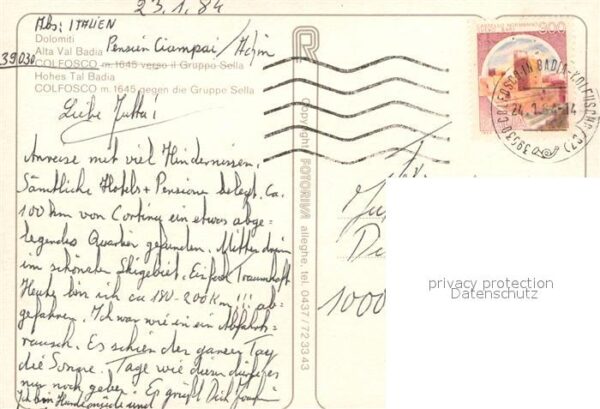 23.1.84
Abs: ITALIEN
Pension Ciampai /
39030
Dolomiti
Alta Val Badia
COLFOSCO m.1645 verso il Gruppo Sella
Hohes Tal Badia
COLFOSCO m.1645 gegen die Gruppe Sella
Liebe Jutta!
Anreise mit viel Hindernissen.
Sämtliche Hotels + Pensione belegt. Ca.
100 km von Cortina ein etwas abge-
legendes Quartier gefunden. Mitten drin
im schönsten Skigebiet. Einfach Traumhaft
Heute bin ich ca 180-200 km !!! ab-
gefahren. Ich war wie in ein Abfahrts-
rausch. Es schien den ganzen Tag
die Sonne. Tage wie diesen dürfte es
nur noch geben. Es grüßt Dich
Ich bin Hundemüde und
Copyright FOTORIVA alleghe, tel. 0437/723343
R
800
39030 COLFOSCO IN BADIA-KOLFUSCHG (BZ)
24.1.84-14
Ju
D
1000
privacy protection
Datenschutz